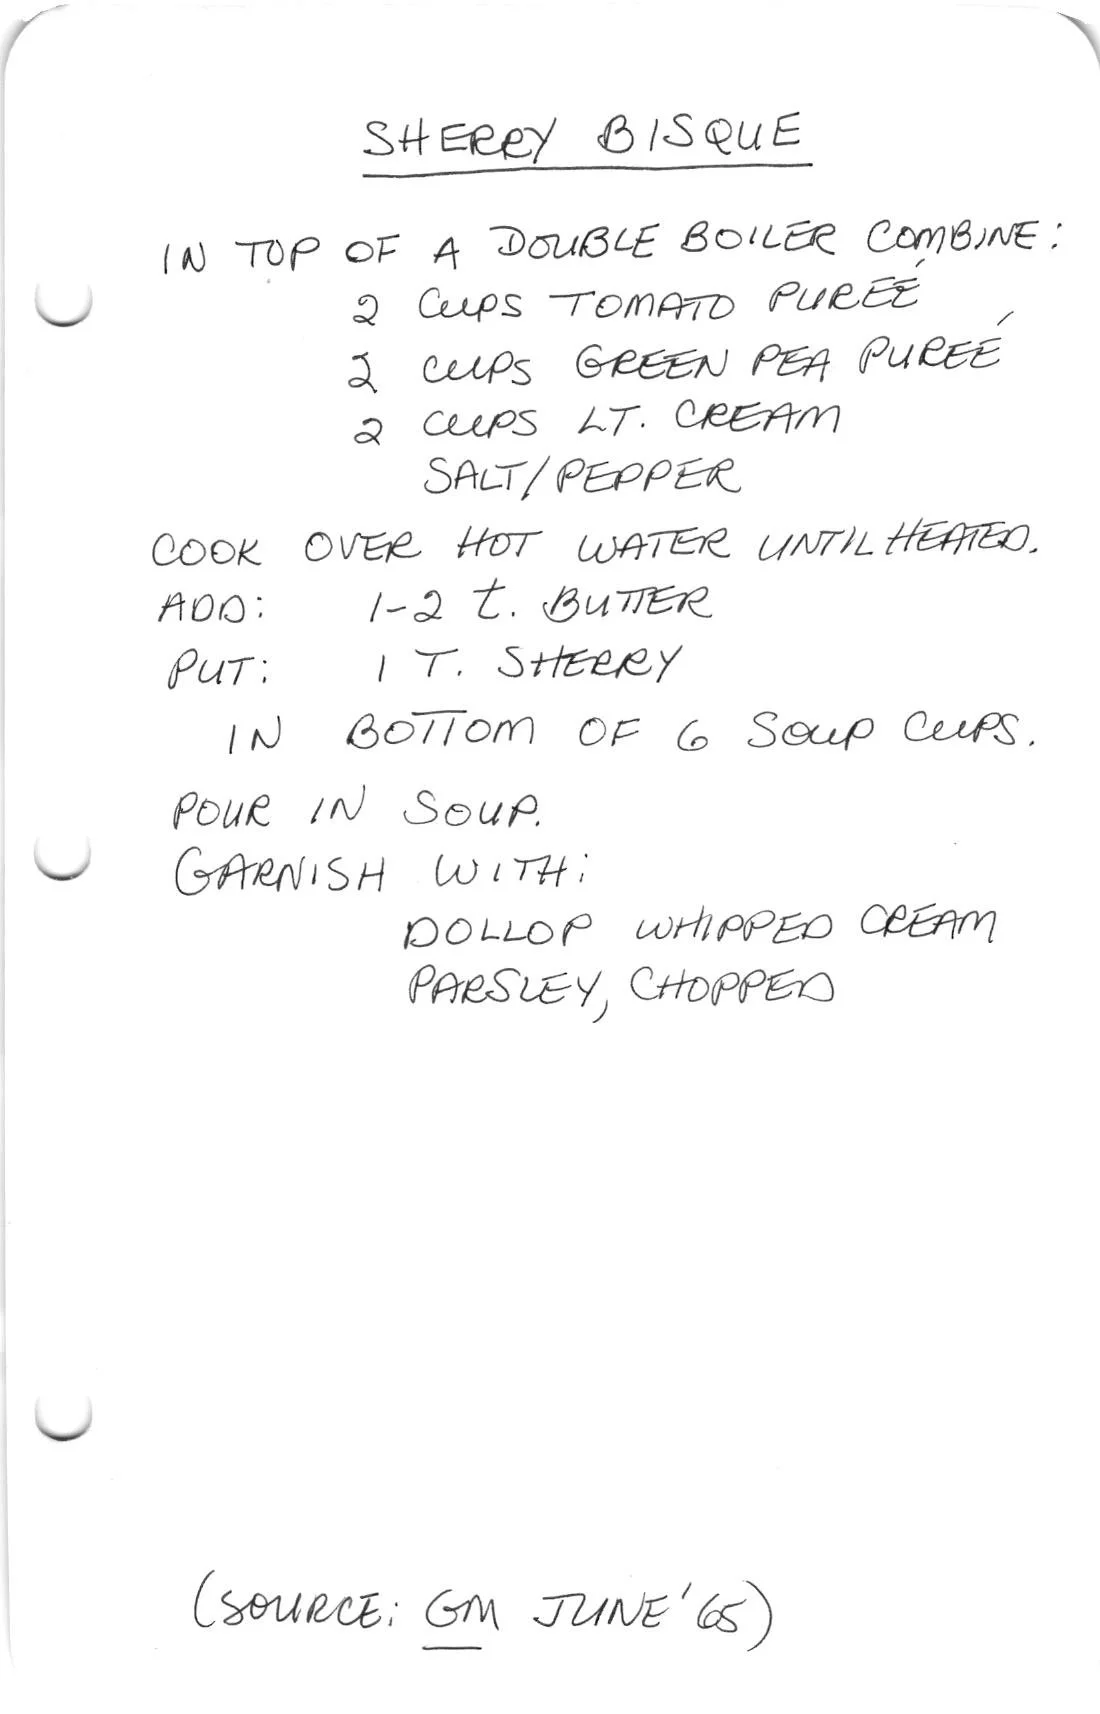 SHERRY BISQUE
IN TOP OF A DOUBLE BOILER COMBINE:
2 CUPS TOMATO PUREÉ
2 CUPS GREEN PEA PUREÉ
2 CUPS LT. CREAM
SALT/PEPPER
COOK OVER HOT WATER UNTIL HEATED.
ADD: 1-2 t. BUTTER
PUT: 1 T. SHERRY
IN BOTTOM OF 6 SOUP CUPS.
POUR IN SOUP.
GARNISH WITH:
DOLLOP WHIPPED CREAM
PARSLEY, CHOPPED
(SOURCE: GM JUNE '65)